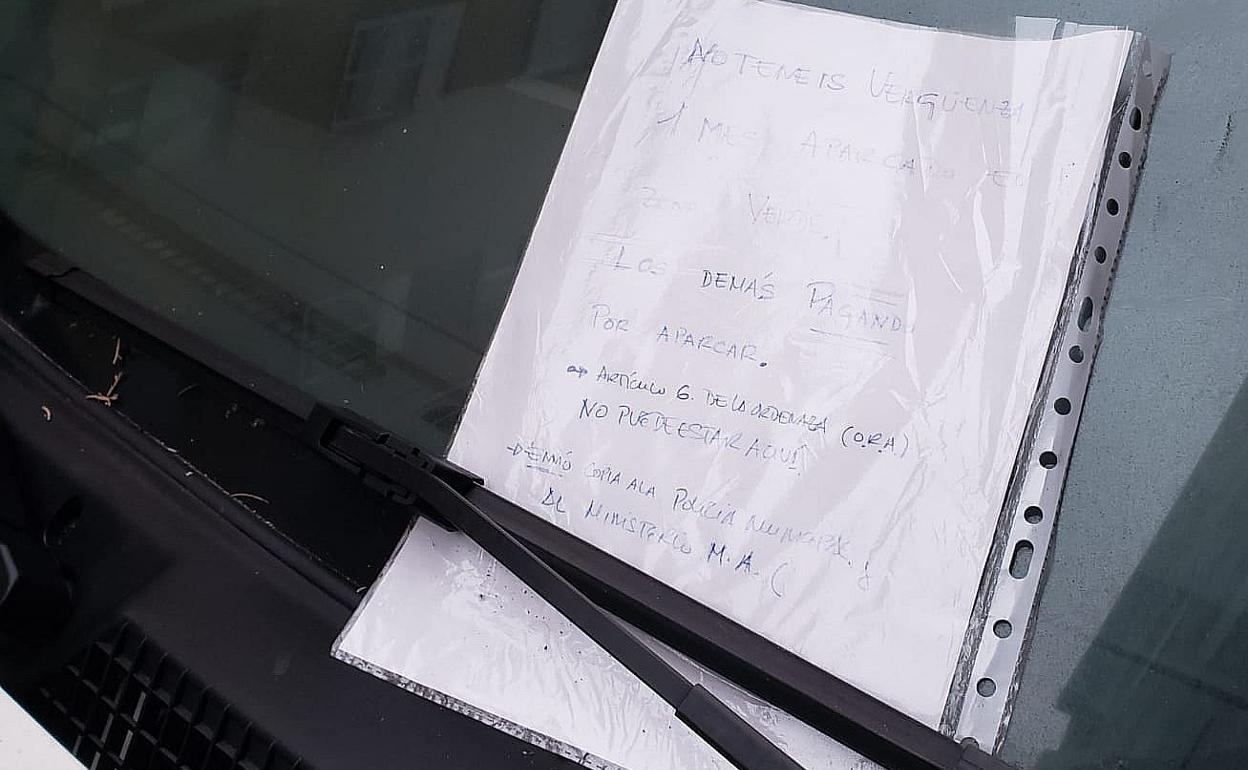 NO TENEIS VERGÜENZA
1 MES APARCADO EN
ZONA VERDE.
LOS DEMÁS PAGANDO
POR APARCAR.
ARTÍCULO 6. DE LA ORDENAZA (O.R.A)
NO PUEDE ESTAR AQUÍ
COPIA A LA POLICÍA MUNICIPAL
AL MINISTERIO M.A.